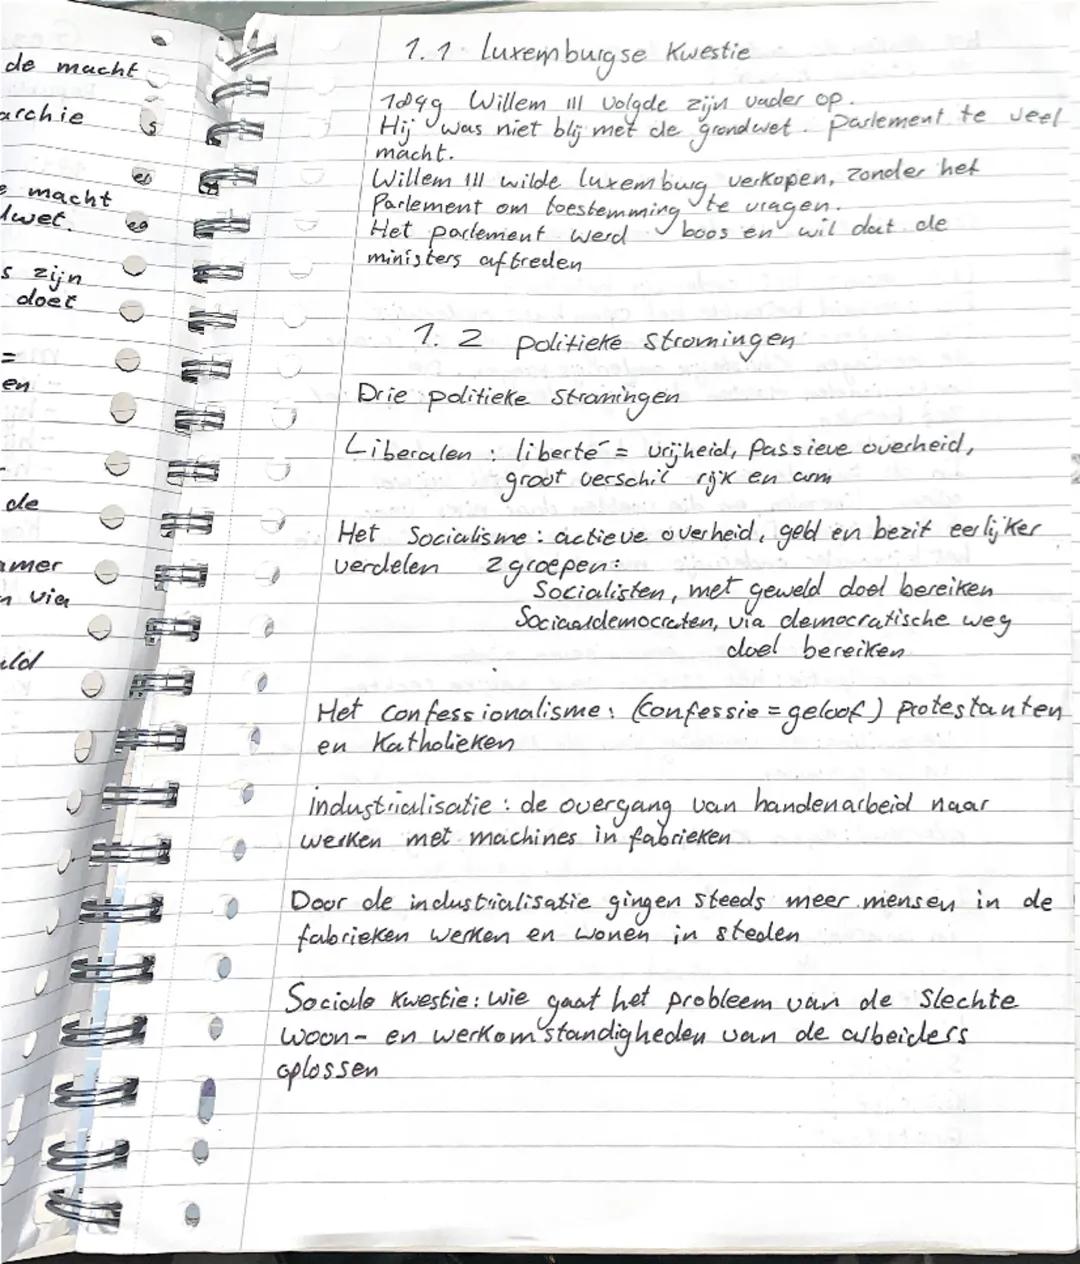 de macht
archie
e macht
dwet.
s zijn
doet
=
en
de
amer
n via
eld
1.1 Luxemburgse Kwestie
1849 Willem III volgde zijn vader op.
Hij was niet blij met de grondwet. Parlement te veel
macht.
Willem III wilde luxemburg verkopen, zonder het
Parlement om toestemming te vragen.
Het parlement werd boos en wil dat de
ministers aftreden
1.2 politieke stromingen
Drie politieke Stromingen
Liberalen : liberté = vrijheid, Passieve overheid,
groot verschil rijk en arm
Het Socialisme : actieve overheid, geld en bezit eerlijker
verdelen 2 groepen:
Socialisten, met geweld doel bereiken
Sociaaldemocraten, via democratische weg
doel bereiken
Het confessionalisme: (confessie = geloof) protestanten
en Katholieken
industrialisatie : de overgang van handenarbeid naar
werken met machines in fabrieken
Door de industrialisatie gingen steeds meer mensen in de
fabrieken werken en wonen in steden
Sociale Kwestie: wie gaat het probleem van de slechte
woon- en werkomstandigheden van de arbeiders
oplossen